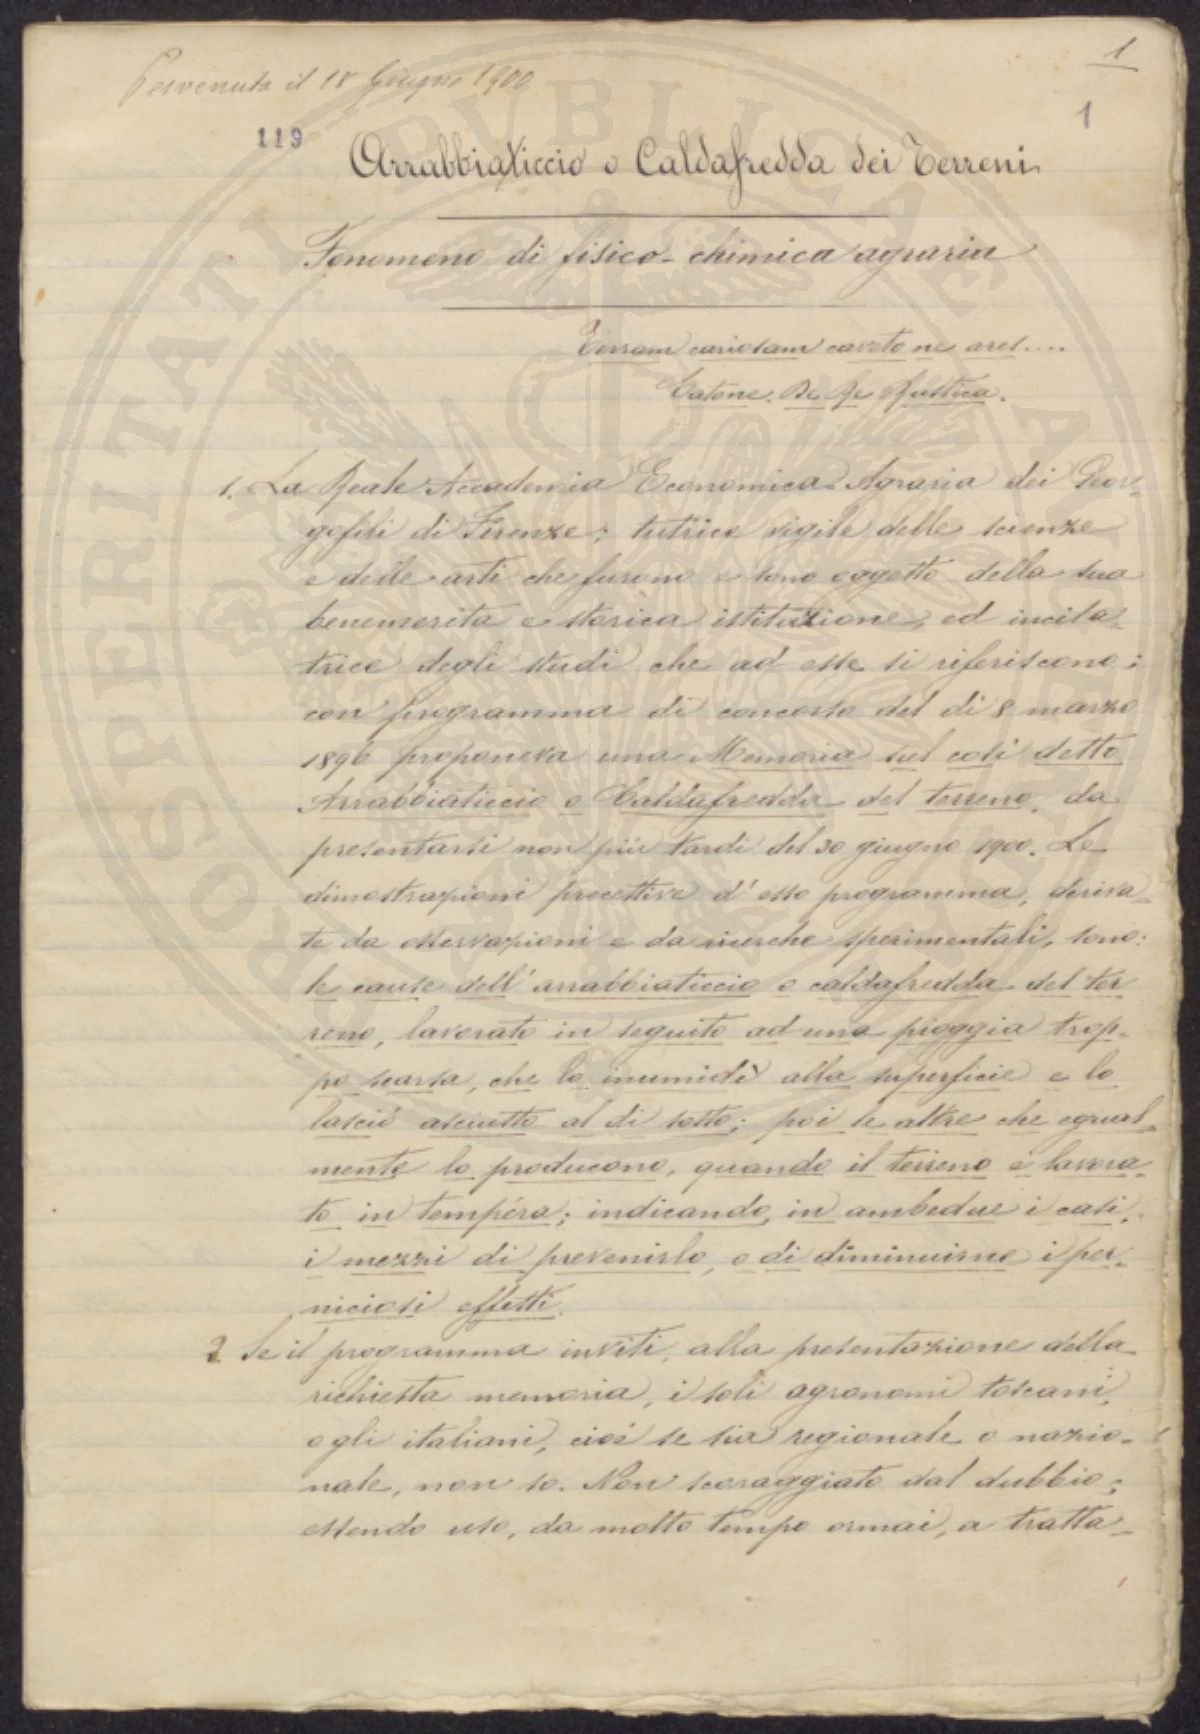 1
Pervenuta il 18 Giugno 1900
1
119
Arrabbiaticcio o Caldafredda dei Terreni
Fenomeno di fisico-chimica agraria
Terram cariosam caveto ne ares....
Catone. De Re Rustica.
1. La Reale Accademia Economica-Agraria dei Geor-
gofili di Firenze; tutrice vigile delle scienze
e delle arti che furono e sono oggetto della sua
benemerita e storica istituzione, ed incita-
trice degli studi che ad esse si riferiscono;
con programma di concorso del di 8 marzo
1896 proponeva una Memoria sul così detto
Arrabbiaticcio o Caldafredda del terreno, da
presentarsi non più tardi del 30 giugno 1900. Le
dimostrazioni precettive d'esso programma, deriva-
te da osservazioni e da ricerche sperimentali, sono:
le cause dell'arrabbiaticcio o caldafredda del ter-
reno, lavorato in seguito ad una pioggia trop-
po scarsa, che lo inumidì alla superficie e lo
lasciò asciutto al di sotto; poi le altre che egual-
mente lo producono, quando il terreno è lavora-
to in tempéra; indicando, in ambedue i casi,
i mezzi di prevenirlo, o di diminuirne i per-
niciosi effetti.
2. Se il programma inviti, alla presentazione della
richiesta memoria, i soli agronomi toscani,
o gli italiani, cioè se sia regionale o nazio-
nale, non so. Non scoraggiato dal dubbio;
essendo uso, da molto tempo ormai, a tratta-
PROSPERITATI PUBLICAE AUGENDAE